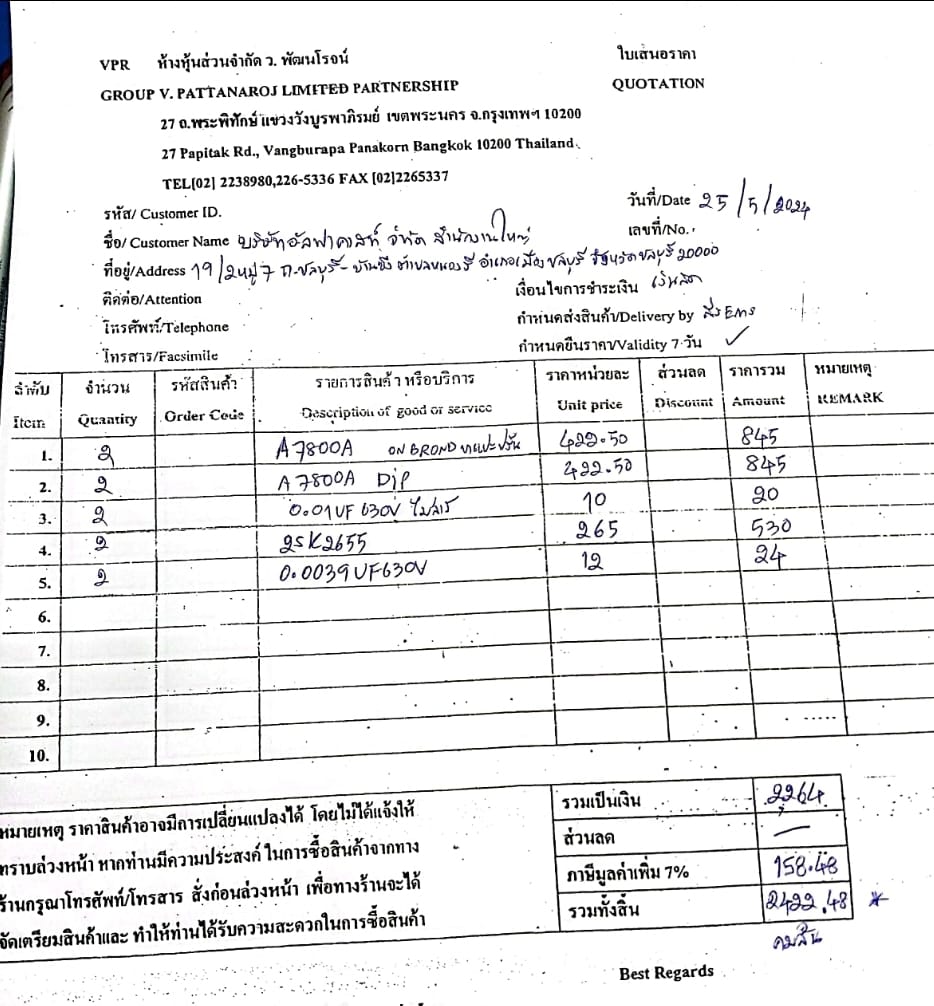 VPR ห้างหุ้นส่วนจำกัด ว. พัฒนโรจน์
ใบเสนอราคา
GROUP V. PATTANAROJ LIMITED PARTNERSHIP
QUOTATION
27 ถ.พระพิทักษ์ แขวงวังบูรพาภิรมย์ เขตพระนคร จ.กรุงเทพฯ 10200
27 Papitak Rd., Vangburapa Panakorn Bangkok 10200 Thailand.
TEL[02] 2238980,226-5336 FAX [02]2265337
รหัส/ Customer ID.
วันที่/Date 25/5/2024
ชื่อ/ Customer Name บริษัทอัลฟาคาสท์ จำกัด สำนักงานใหญ่
เลขที่/No.
ที่อยู่/Address 19/2หมู่7 ถ.ชลบุรี-บ้านบึง ตำบลหนองรี อำเภอเมืองชลบุรี จังหวัดชลบุรี 20000
ติดต่อ/Attention
เงื่อนไขการชำระเงิน เงินสด
โทรศัพท์/Telephone
กำหนดส่งสินค้า/Delivery by ส่ง EMS
โทรสาร/Facsimile
กำหนดยืนราคา/Validity 7 วัน ✓
ลำดับ จำนวน รหัสสินค้า รายการสินค้า หรือบริการ ราคาหน่วยละ ส่วนลด ราคารวม หมายเหตุ
Item Quantity Order Code Description of good or service Unit price Discount Amount REMARK
1. 2 A7800A ON BROND 422.50 845
2. 2 A7800A DIP 422.50 845
3. 2 0.01UF 630V 10 20
4. 2 2SK2655 265 530
5. 2 0.0039UF630V 12 24
6.
7.
8.
9.
10.
หมายเหตุ ราคาสินค้าอาจมีการเปลี่ยนแปลงได้ โดยไม่ได้แจ้งให้
ทราบล่วงหน้า หากท่านมีความประสงค์ ในการซื้อสินค้าจากทาง
ร้านกรุณาโทรศัพท์/โทรสาร สั่งก่อนล่วงหน้า เพื่อทางร้านจะได้
จัดเตรียมสินค้าและ ทำให้ท่านได้รับความสะดวกในการซื้อสินค้า
รวมเป็นเงิน 2264
ส่วนลด —
ภาษีมูลค่าเพิ่ม 7% 158.48
รวมทั้งสิ้น 2422.48 *
Best Regards